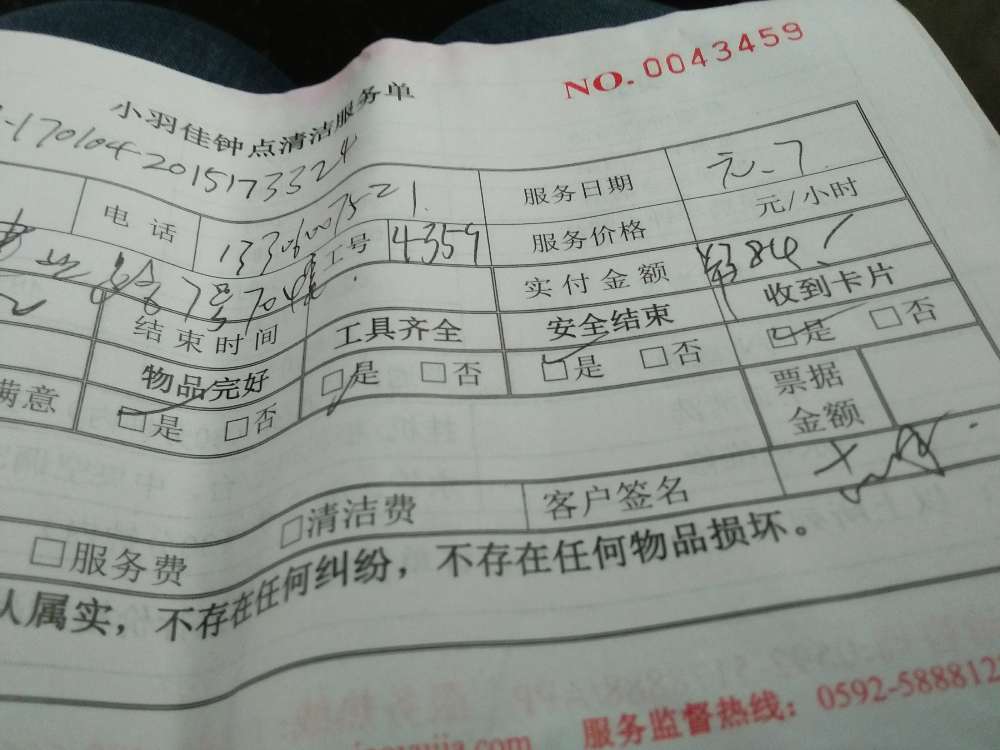 NO.0043459
小羽佳钟点清洁服务单
-170104-2015173324
电话
服务日期 元.7
工号 4359 服务价格 元/小时
7号704
实付金额 84
结束时间 工具齐全 安全结束 收到卡片
物品完好 □是 □否 □是 □否 □是 □否
满意 □是 □否 票据金额
□服务费 □清洁费 客户签名
人属实，不存在任何纠纷，不存在任何物品损坏。
服务监督热线：0592-588812